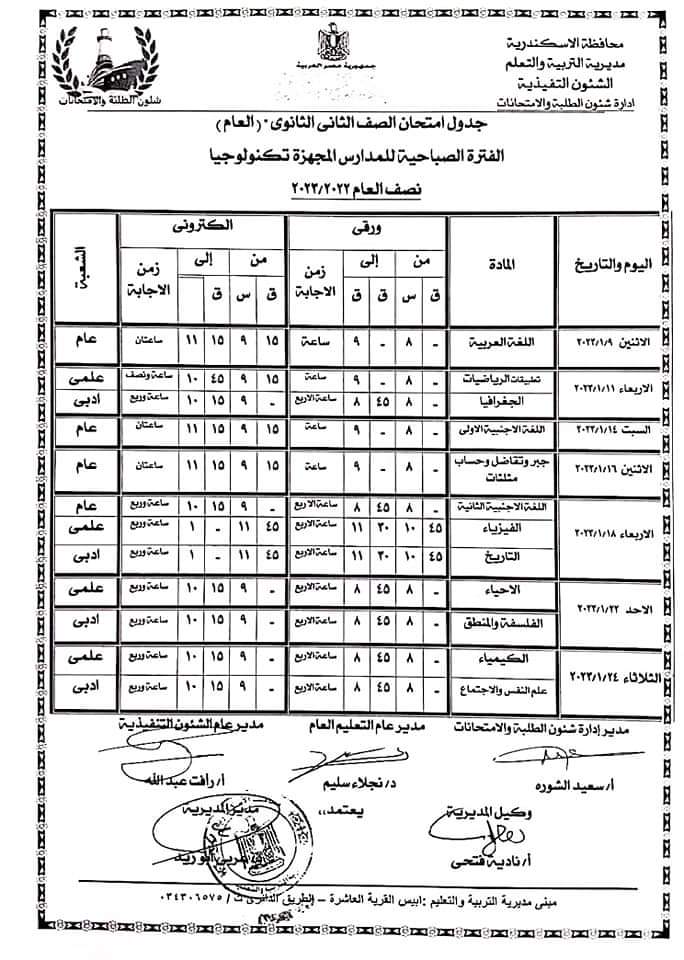 محافظة الاسكندرية
مديرية التربية والتعلم
الشئون التفيذية
إدارة شئون الطلبة والامتحانات
جمهورية مصر العربية
شئون الطلبة والامتحانات
جدول امتحان الصف الثانى الثانوى "(العام)
الفترة الصباحية للمدارس المجهزة تكنولوجيا
نصف العام ٢٠٢٣/٢٠٢٢
اليوم والتاريخ المادة ورقى الكترونى الشعبة
من إلى زمن الاجابة من إلى زمن الاجابة
ق س ق ق ق س ق
الاثنين ٢٠٢٣/١/٩ اللغة العربية - ٨ - ٩ ساعة ١٥ ٩ ١٥ ١١ ساعتان عام
الاربعاء ٢٠٢٣/١/١١ تطبيقات الرياضيات - ٨ - ٩ ساعة ١٥ ٩ ٤٥ ١٠ ساعة ونصف علمى
الجغرافيا - ٨ ٤٥ ٨ ساعة الاربع - ٩ ١٥ ١٠ ساعة وربع ادبى
السبت ٢٠٢٣/١/١٤ اللغة الاجنبية الاولى - ٨ - ٩ ساعة ١٥ ٩ ١٥ ١١ ساعتان عام
الاثنين ٢٠٢٣/١/١٦ جبر وتفاضل وحساب مثلثات - ٨ - ٩ ساعة ١٥ ٩ ١٥ ١١ ساعتان عام
الاربعاء ٢٠٢٣/١/١٨ اللغة الاجنبية الثانية - ٨ ٤٥ ٨ ساعة الاربع - ٩ ١٥ ١٠ ساعة وربع عام
الفيزياء ٤٥ ١٠ ٣٠ ١١ ساعة الاربع ٤٥ ١١ - ١ ساعة وربع علمى
التاريخ ٤٥ ١٠ ٣٠ ١١ ساعة الاربع ٤٥ ١١ - ١ ساعة وربع ادبى
الاحد ٢٠٢٣/١/٢٢ الاحياء - ٨ ٤٥ ٨ ساعة الاربع - ٩ ١٥ ١٠ ساعة وربع علمى
الفلسفة والمنطق - ٨ ٤٥ ٨ ساعة الاربع - ٩ ١٥ ١٠ ساعة وربع ادبى
الثلاثاء ٢٠٢٣/١/٢٤ الكيمياء - ٨ ٤٥ ٨ ساعة الاربع - ٩ ١٥ ١٠ ساعة وربع علمى
علم النفس والاجتماع - ٨ ٤٥ ٨ ساعة الاربع - ٩ ١٥ ١٠ ساعة وربع ادبى
مدير إدارة شئون الطلبة والامتحانات مدير عام التعليم العام مدير عام الشئون التنفيذية
أ/ سعيد الشوره د/ نجلاء سليم أ/ رافت عبد الله
وكيل المديرية يعتمد،، مدير المديرية
أ/ نادية فتحى عربى ابو زيد
مبنى مديرية التربية والتعليم : ابيس القرية العاشرة - الطريق الدائرى ت / ٠٣٤٣٠٦٥٧٥